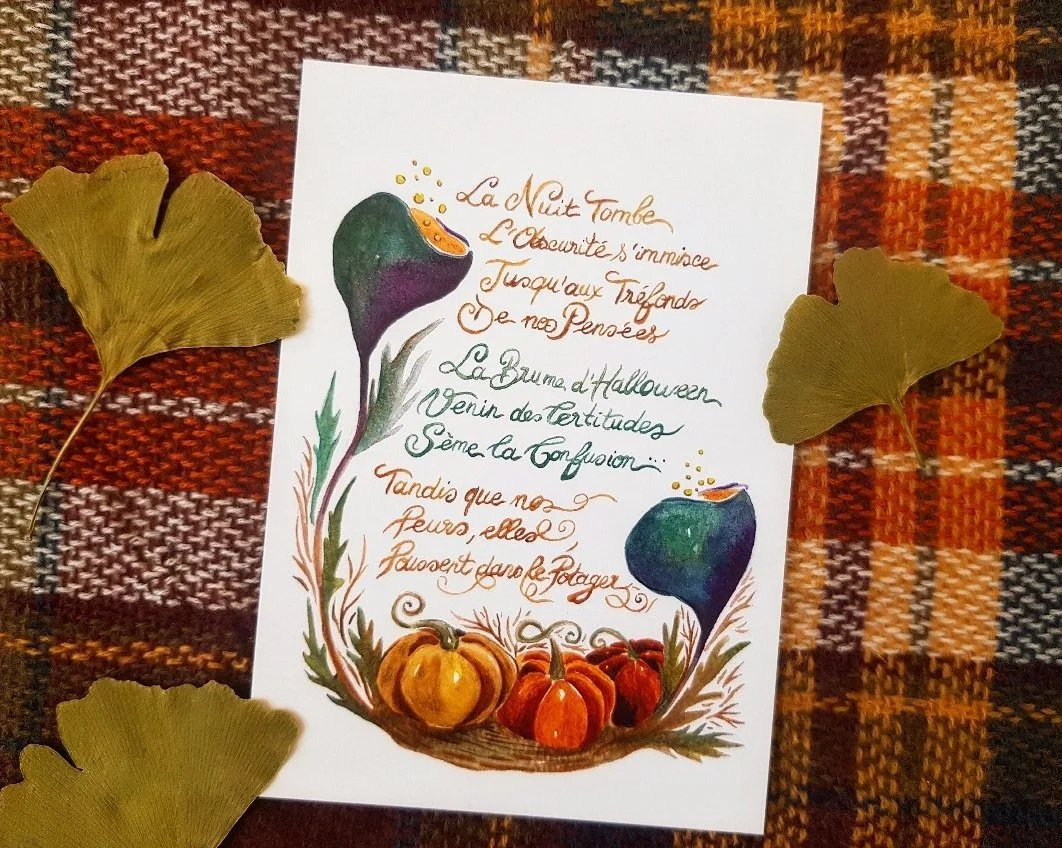 La Nuit Tombe
L'Obscurité s'immisce
Jusqu'aux Tréfonds
De nos Pensées
La Brume d'Halloween
Venin des Certitudes
Sème la Confusion...
Tandis que nos
Peurs, elles
Poussent dans le Potager